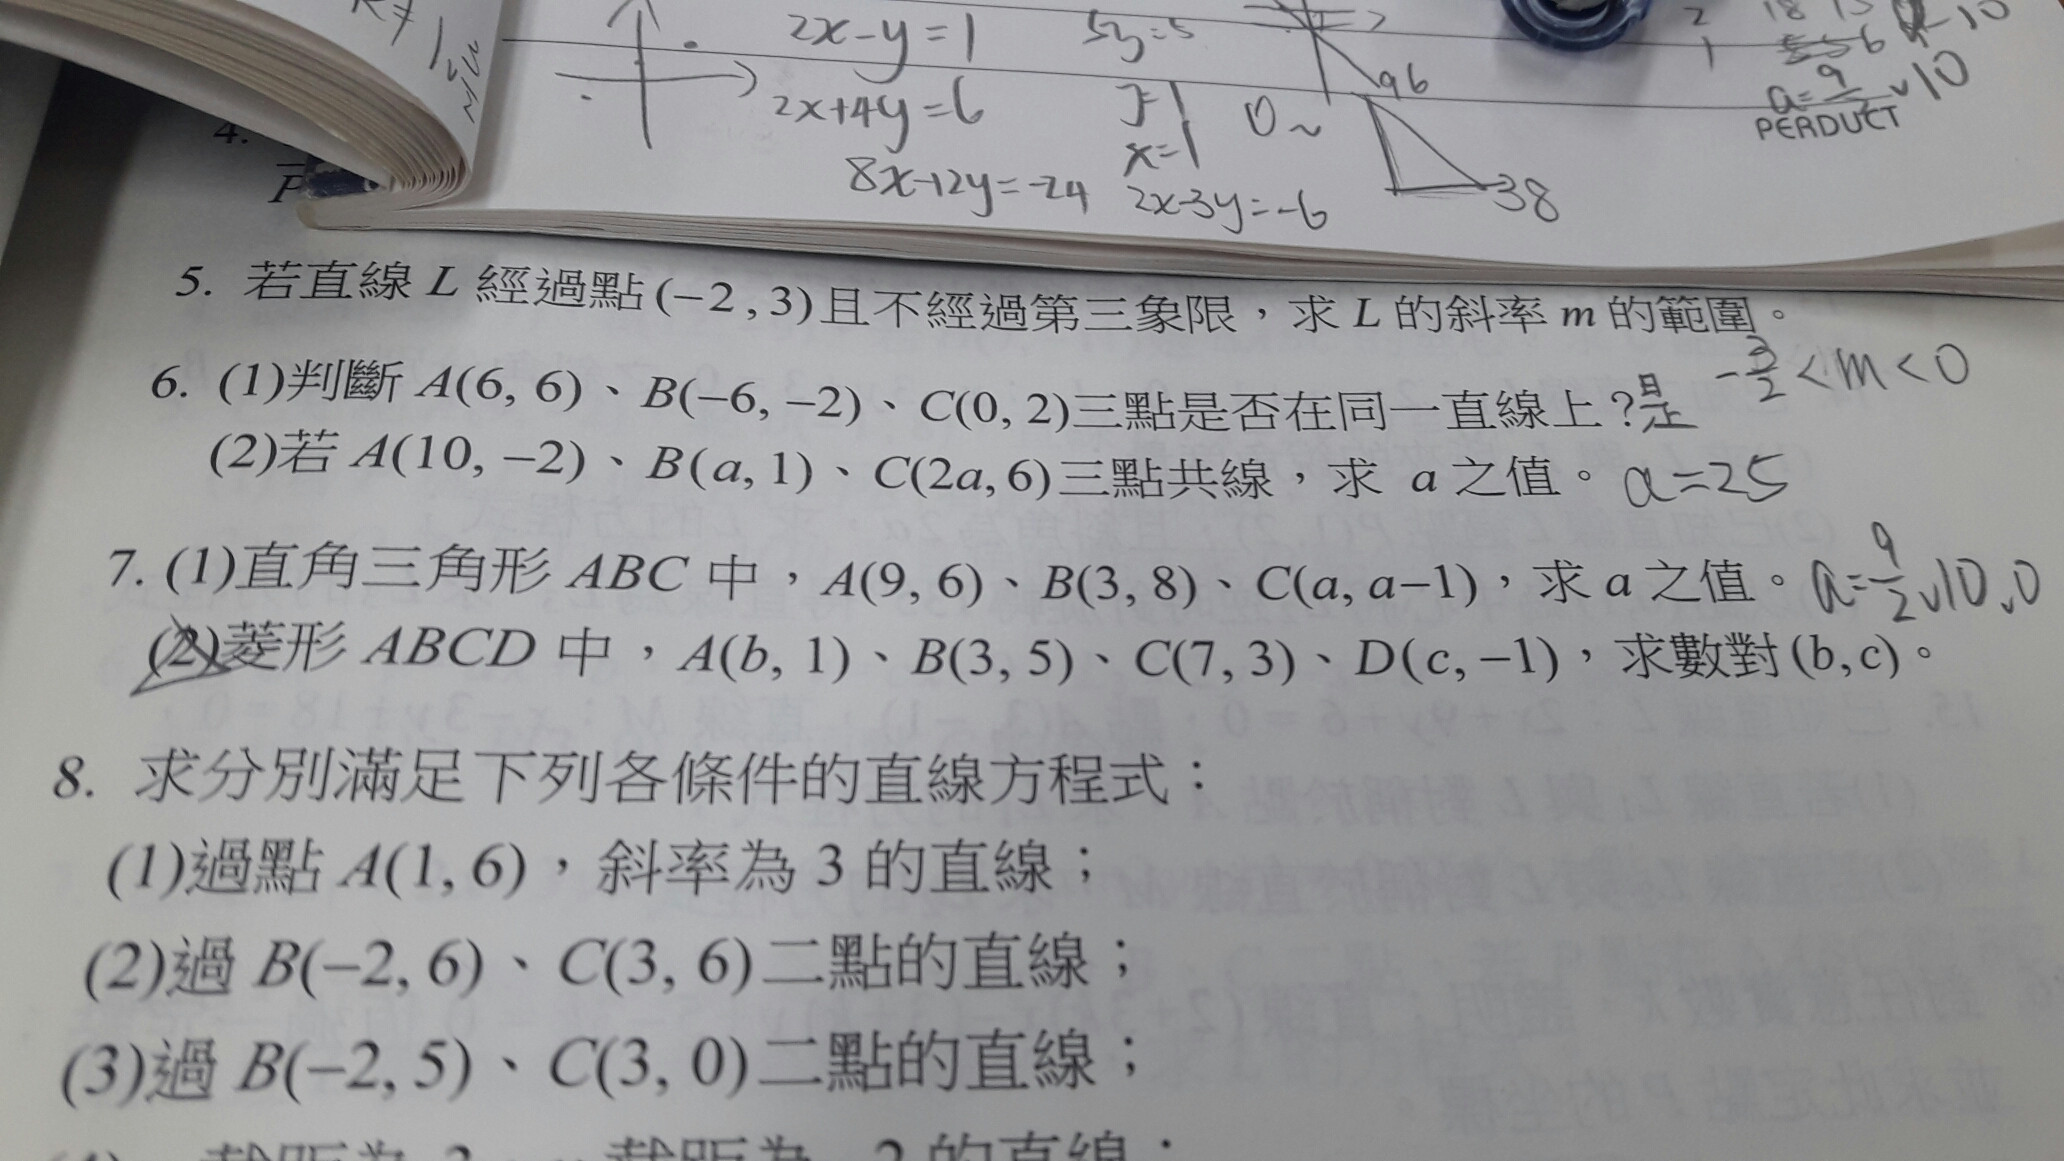 2x-y=1 5y=5
2x+4y=6 y=1
x=1
8x-12y=-24 2x-3y=-6
96
38
0~
2 18 15
1
a=9/2 ∨10
PERDUCT
4.
5. 若直線 L 經過點(−2,3)且不經過第三象限,求 L 的斜率 m 的範圍。
-3/2<m<0
6. (1)判斷 A(6, 6)、B(−6, −2)、C(0, 2)三點是否在同一直線上?是
(2)若 A(10, −2)、B(a, 1)、C(2a, 6)三點共線,求 a 之值。a=25
7. (1)直角三角形 ABC 中,A(9, 6)、B(3, 8)、C(a, a−1),求 a 之值。a=9/2∨10∨0
(2)菱形 ABCD 中,A(b, 1)、B(3, 5)、C(7, 3)、D(c, −1),求數對(b,c)。
8. 求分別滿足下列各條件的直線方程式:
(1)過點 A(1, 6),斜率為 3 的直線;
(2)過 B(−2, 6)、C(3, 6)二點的直線;
(3)過 B(−2, 5)、C(3, 0)二點的直線;